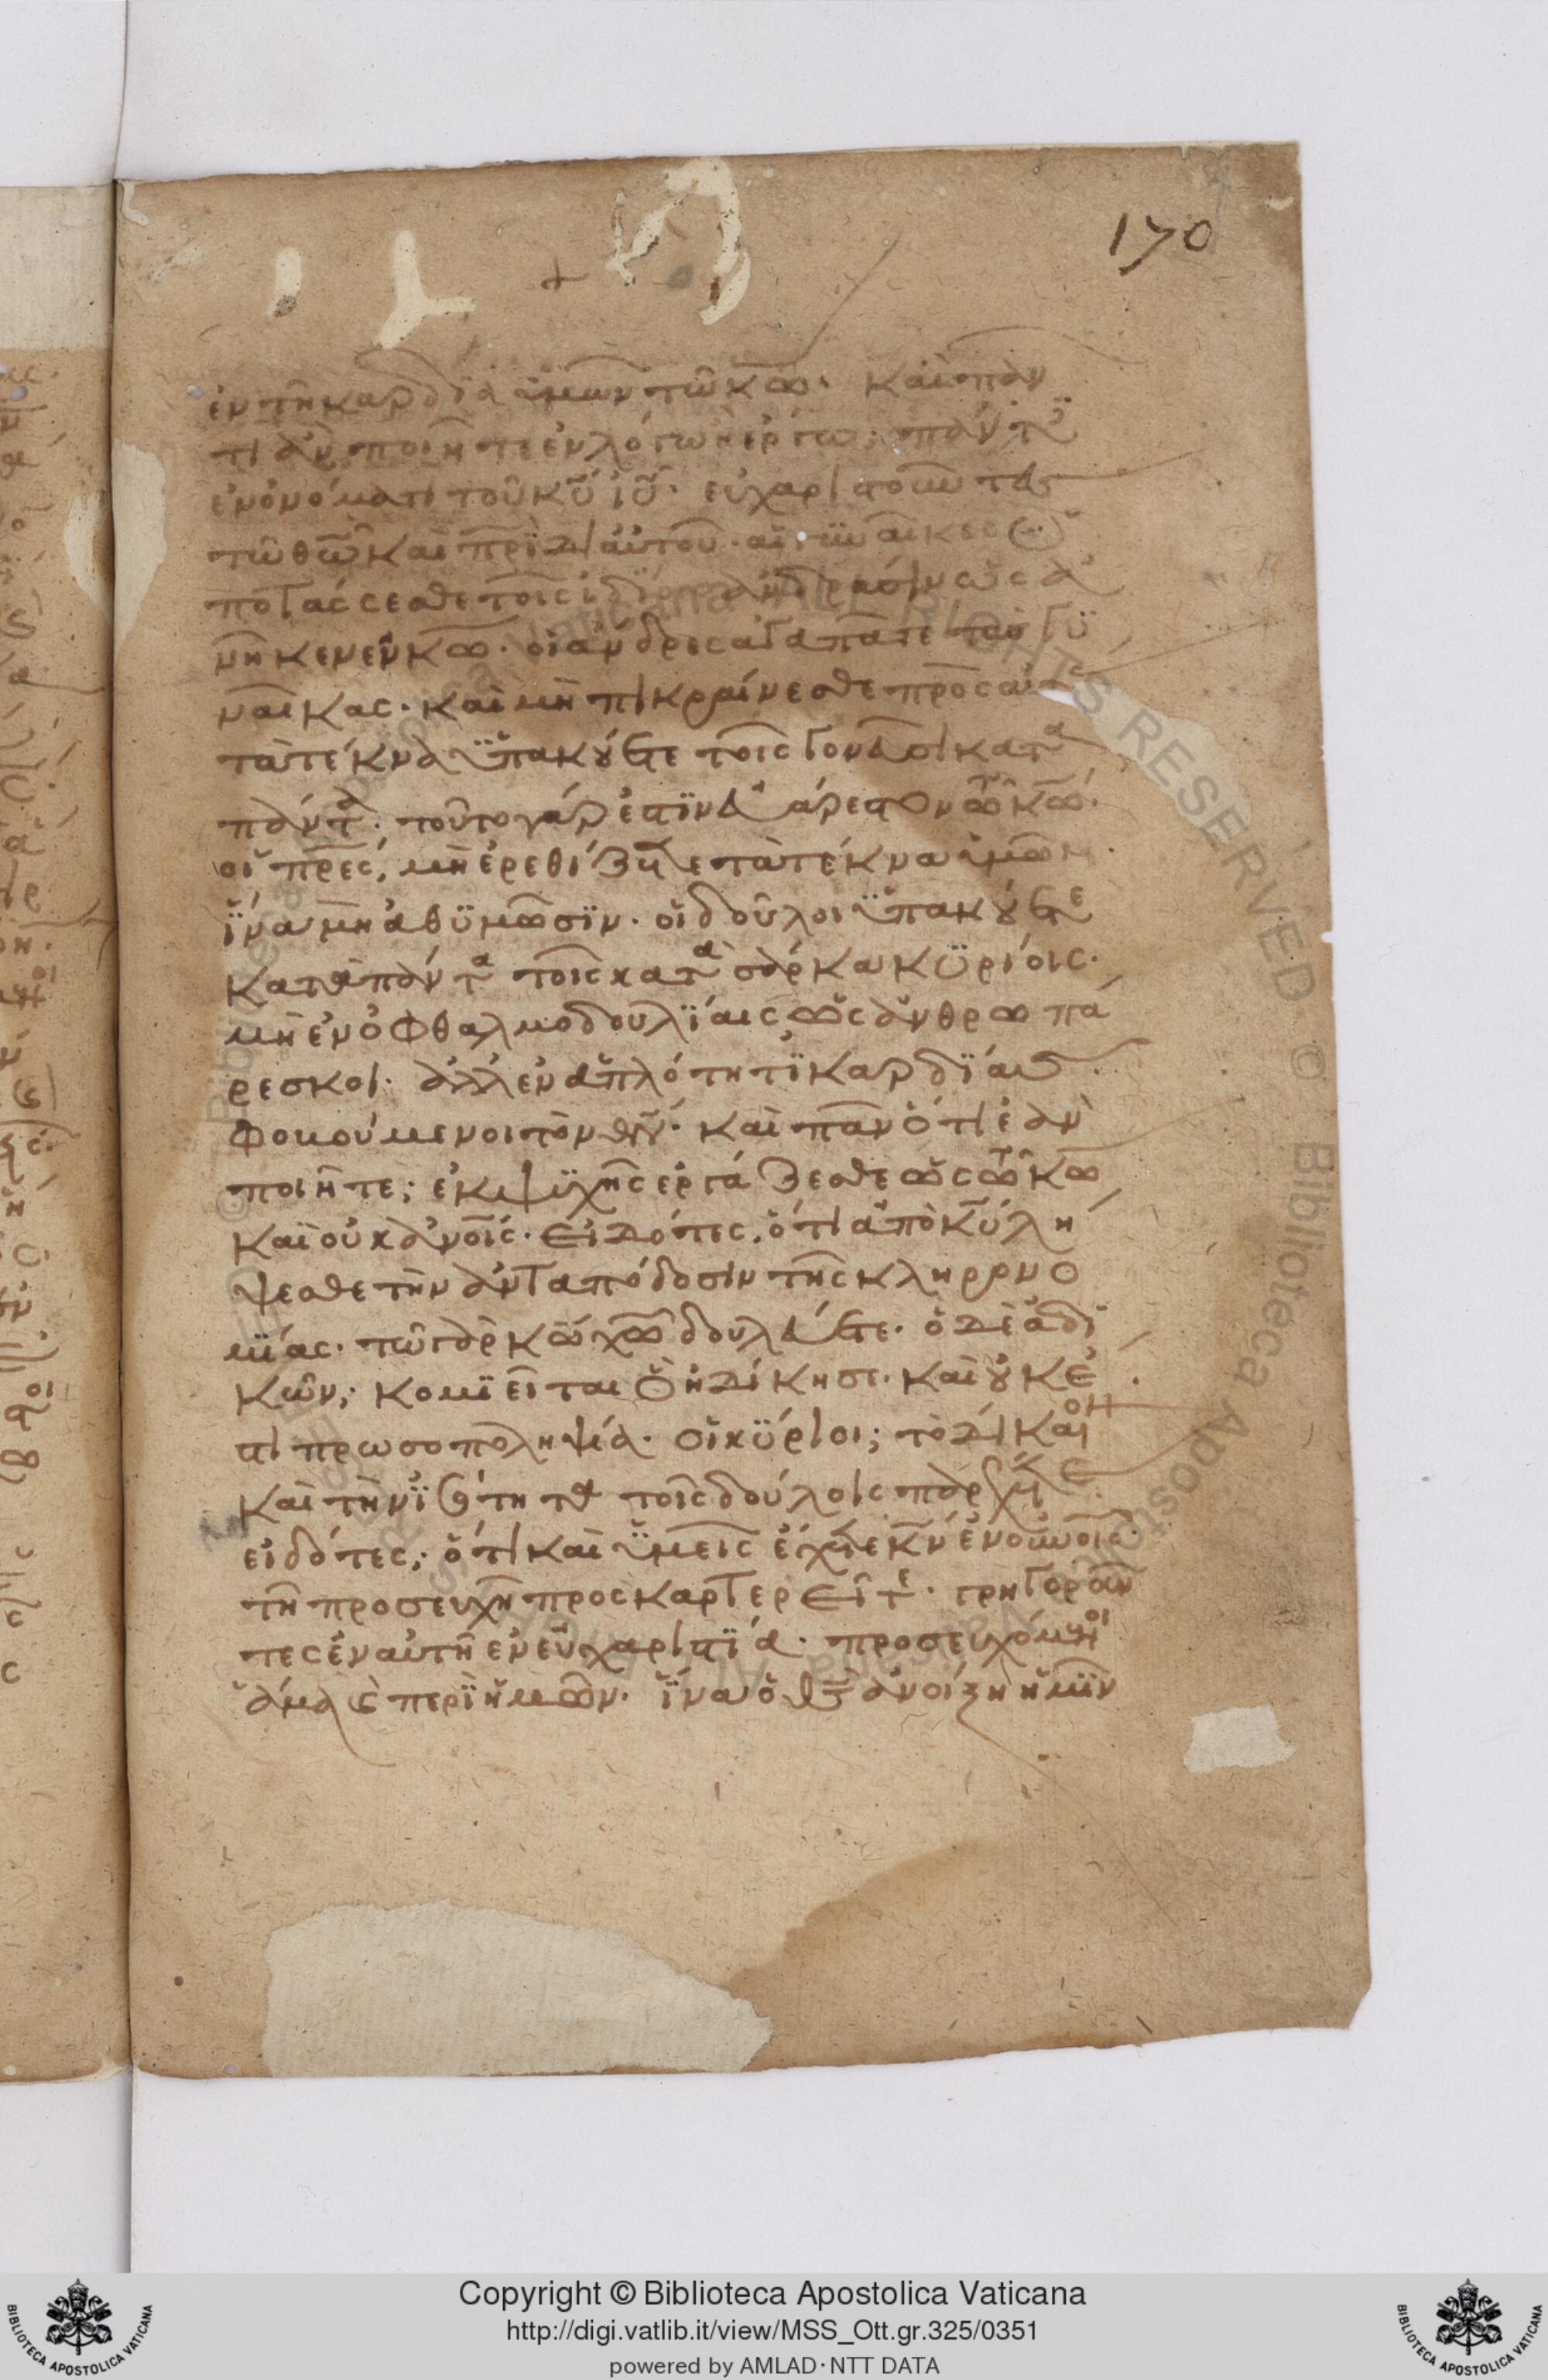 170
+
ἐν τῆ καρδία ὑμῶν τῶ κ̅ω̅· καὶ πᾶν
τὶ ἂν ποιῆτε ἐν λόγω ἢ ἔργω; πάντα
ἐν ὀνόματι τοῦ κ̅υ̅ ἰ̅υ̅· εὐχαριστοῦντες
τῶ θ̅ω̅ καὶ π̅ρ̅ὶ δι αὐτοῦ· αἱ γυναῖκες ὑ
ποτάσσεσθε τοῖς ἰδίοις ἀνδράσιν ὡς ἀ
νῆκεν ἐν κ̅ω̅· οἱ ἄνδρες ἀγαπᾶτε τὰς γυ
ναῖκας· καὶ μὴ πικραίνεσθε πρὸς αὐτάς
τὰ τέκνα ὑπακούετε τοῖς γονεῦσι κατὰ
πάντα· τοῦτο γάρ ἐστιν εὐάρεστον τῶ κ̅ω̅·
οἱ π̅ρ̅ε̅ς̅, μὴ ἐρεθίζετε τὰ τέκνα ὑμῶν·
ἵνα μὴ ἀθυμῶσιν· οἱ δοῦλοι ὑπακούετε
κατὰ πάντα τοῖς κατὰ σάρκα κυρίοις·
μὴ ἐν ὀφθαλμοδουλίαις ὡς ἀνθρωπά
ρεσκοι· ἀλλ ἐν ἁπλότητι καρδίας
φοβούμενοι τὸν θ̅ν̅· καὶ πᾶν ὅτι ἐὰν
ποιῆτε; ἐκ ψυχῆς ἐργάζεσθε ὡς τῶ κ̅ω̅
καὶ οὐκ ἀ̅ν̅ο̅ι̅ς̅· εἰδότες, ὅτι ἀπὸ κ̅υ̅ λή
ψεσθε τὴν ἀνταπόδοσιν τῆς κληρονο
μίας· τῶ γὰρ κ̅ω̅ χ̅ω̅ δουλεύετε· ὁ δὲ ἀδι
κῶν; κομιεῖται ὃ ἠδίκησε· καὶ οὐκ ἔ
στι πρωσοποληψία· οἱ κύριοι; τὸ δίκαιον
καὶ τὴν ἰσότητα τοῖς δούλοις παρέχετε
εἰδότες; ὅτι καὶ ὑμεῖς ἔχετε κ̅ν̅ ἐν ο̅υ̅ν̅ο̅ι̅ς̅·
τῆ προσευχῆ προσκαρτερεῖτε· γρηγοροῦν
τες ἐν αὐτῆ ἐν εὐχαριστία· προσευχόμενοι
ἅμα καὶ περὶ ἡμῶν· ἵνα ὁ θ̅ς̅ ἀνοίξη ἡμῖν
Copyright © Biblioteca Apostolica Vaticana
http://digi.vatlib.it/view/MSS_Ott.gr.325/0351
powered by AMLAD·NTT DATA